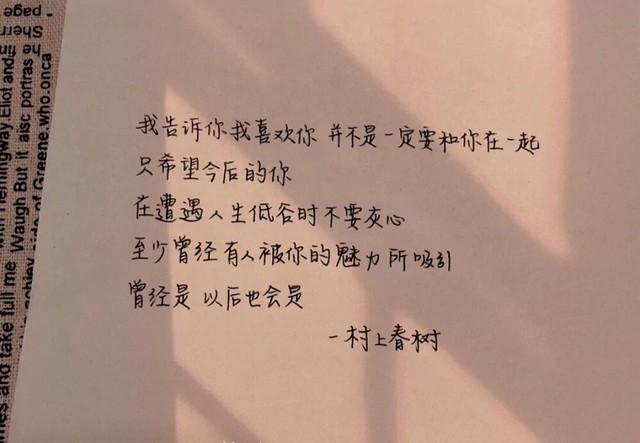 我告诉你我喜欢你 并不是一定要和你在一起
只希望今后的你
在遭遇人生低谷时不要灰心
至少曾经有人被你的魅力所吸引
曾经是 以后也会是
-村上春树
page
mes and take full me. Waugh But if